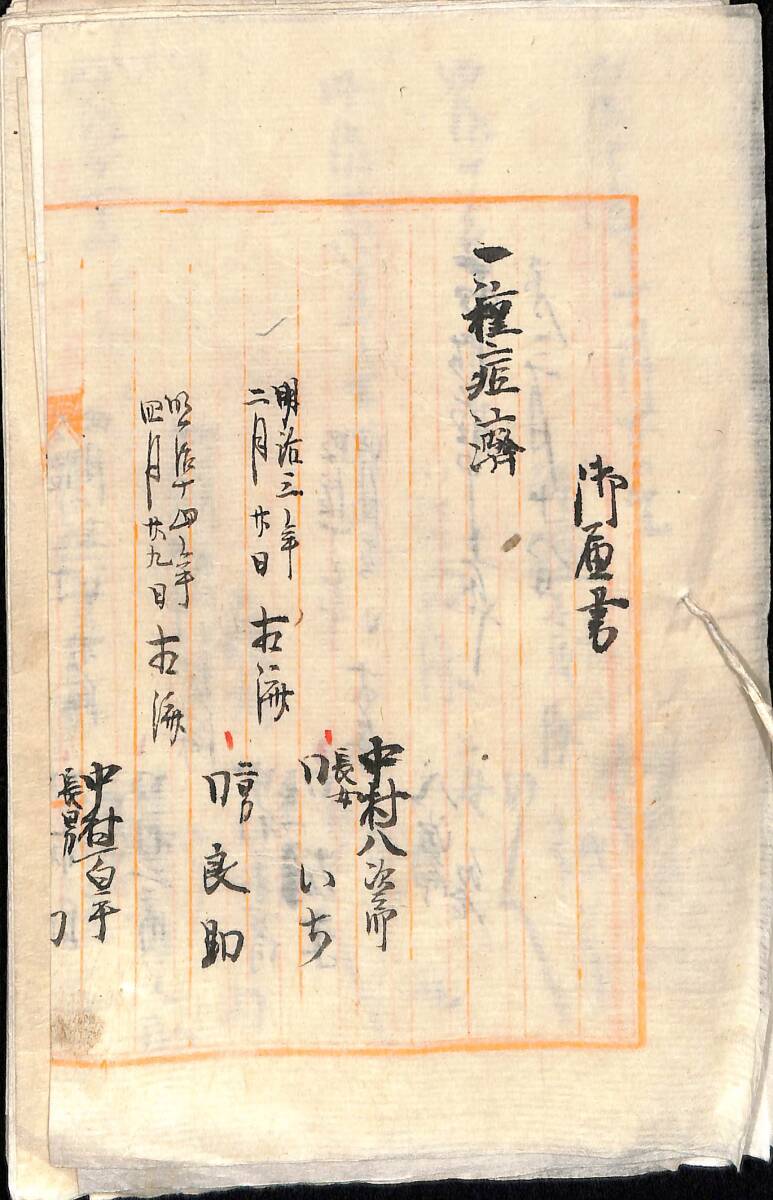 御届書
一種痘済
中村八次郎
長女
〃いち
明治三年
二月廿日
二男
〃良助
明治十四年
四月廿九日
中村百平
長男